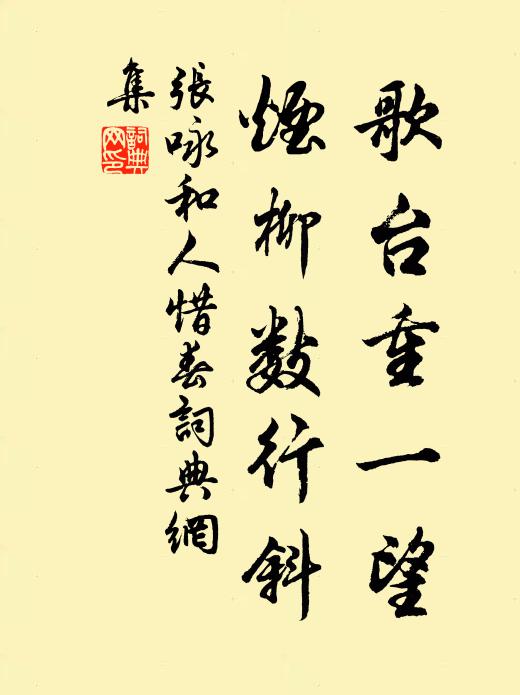 歌台重一望
煙柳數行斜
張咏和人惜春詞典網
集
詞典
网印